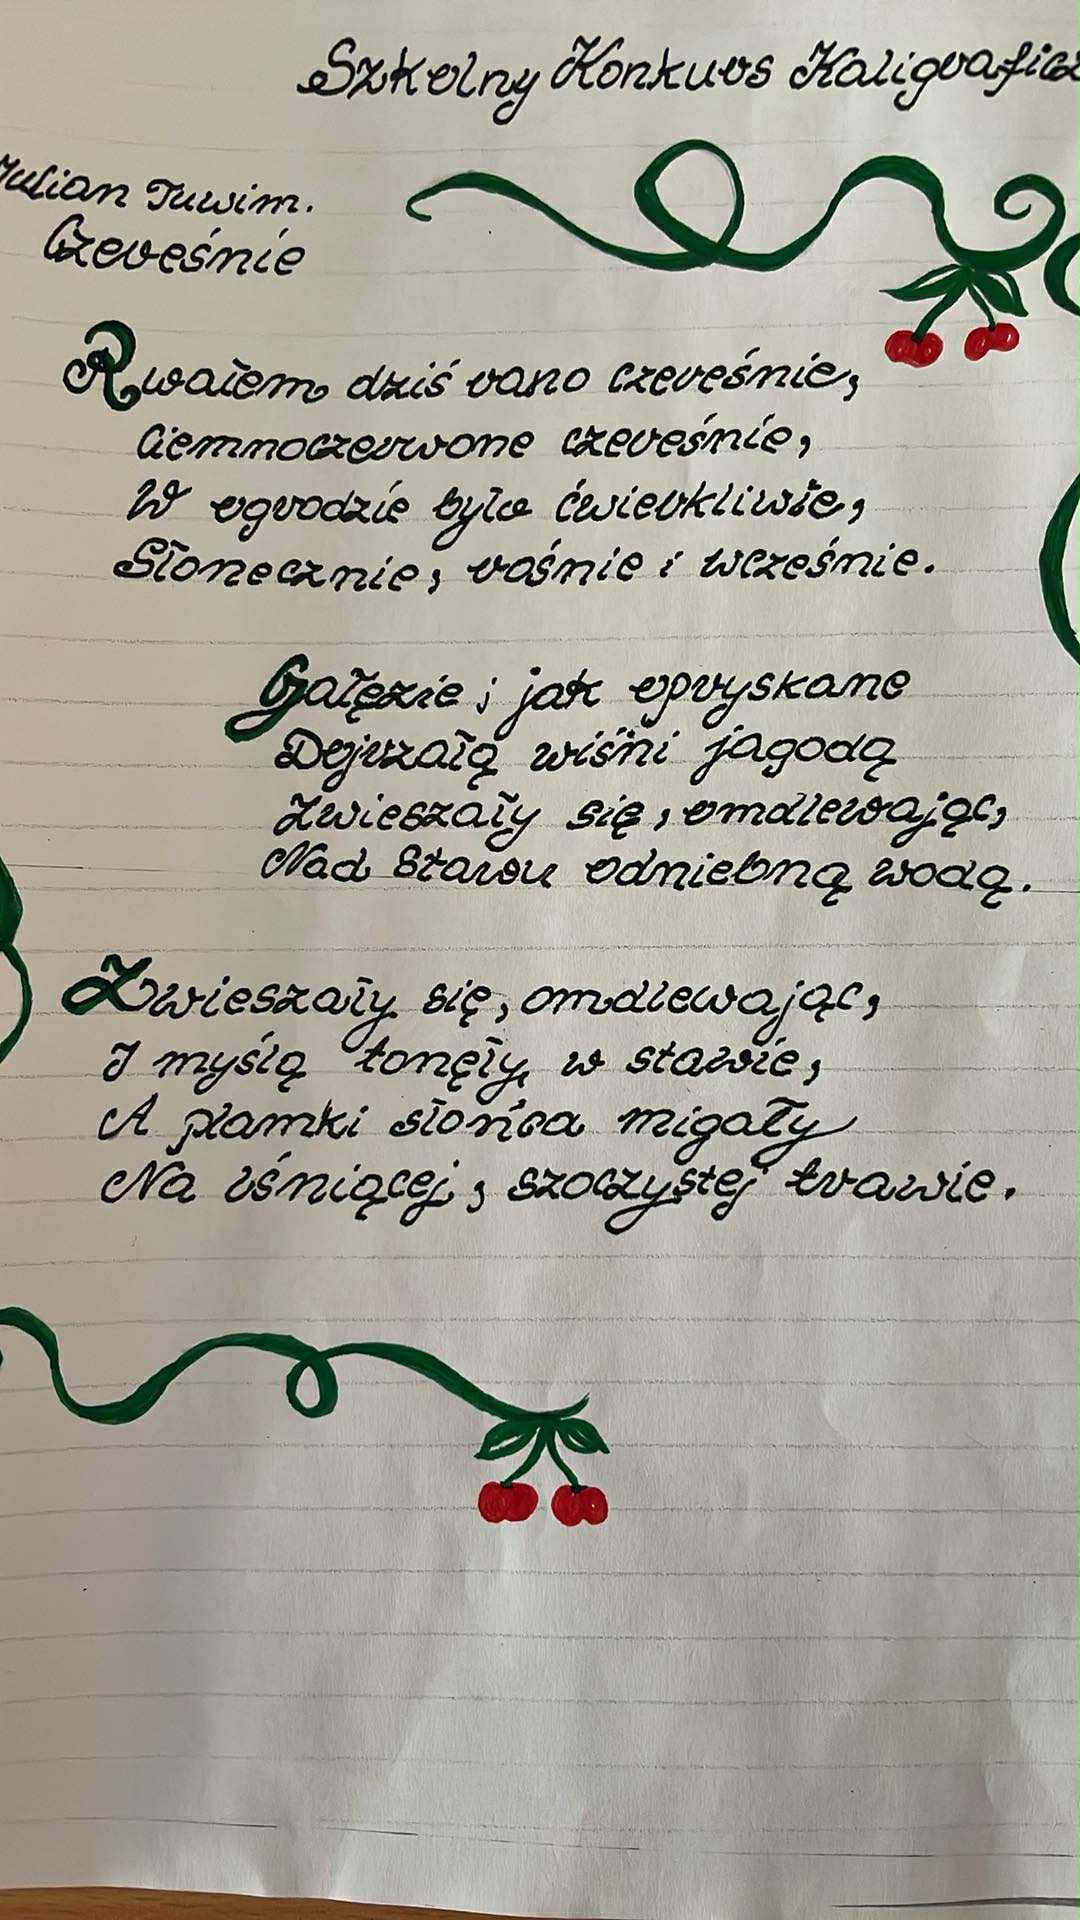 Szkolny Konkurs Kaligraficz
Julian Tuwim.
Czereśnie
Rwałem dziś rano czereśnie,
Ciemnoczerwone czereśnie,
W ogrodzie było ćwierkliwie,
Słonecznie, rośnie i wcześnie.
Gałęzie, jak opryskane
Dojrzałą wiśni jagodą
Zwieszały się, omdlewając,
Nad stawu odniebną wodą.
Zwieszały się, omdlewając,
I myślą tonęły, w stawie,
A plamki słońca migały
Na lśniącej, szoczystej trawie.